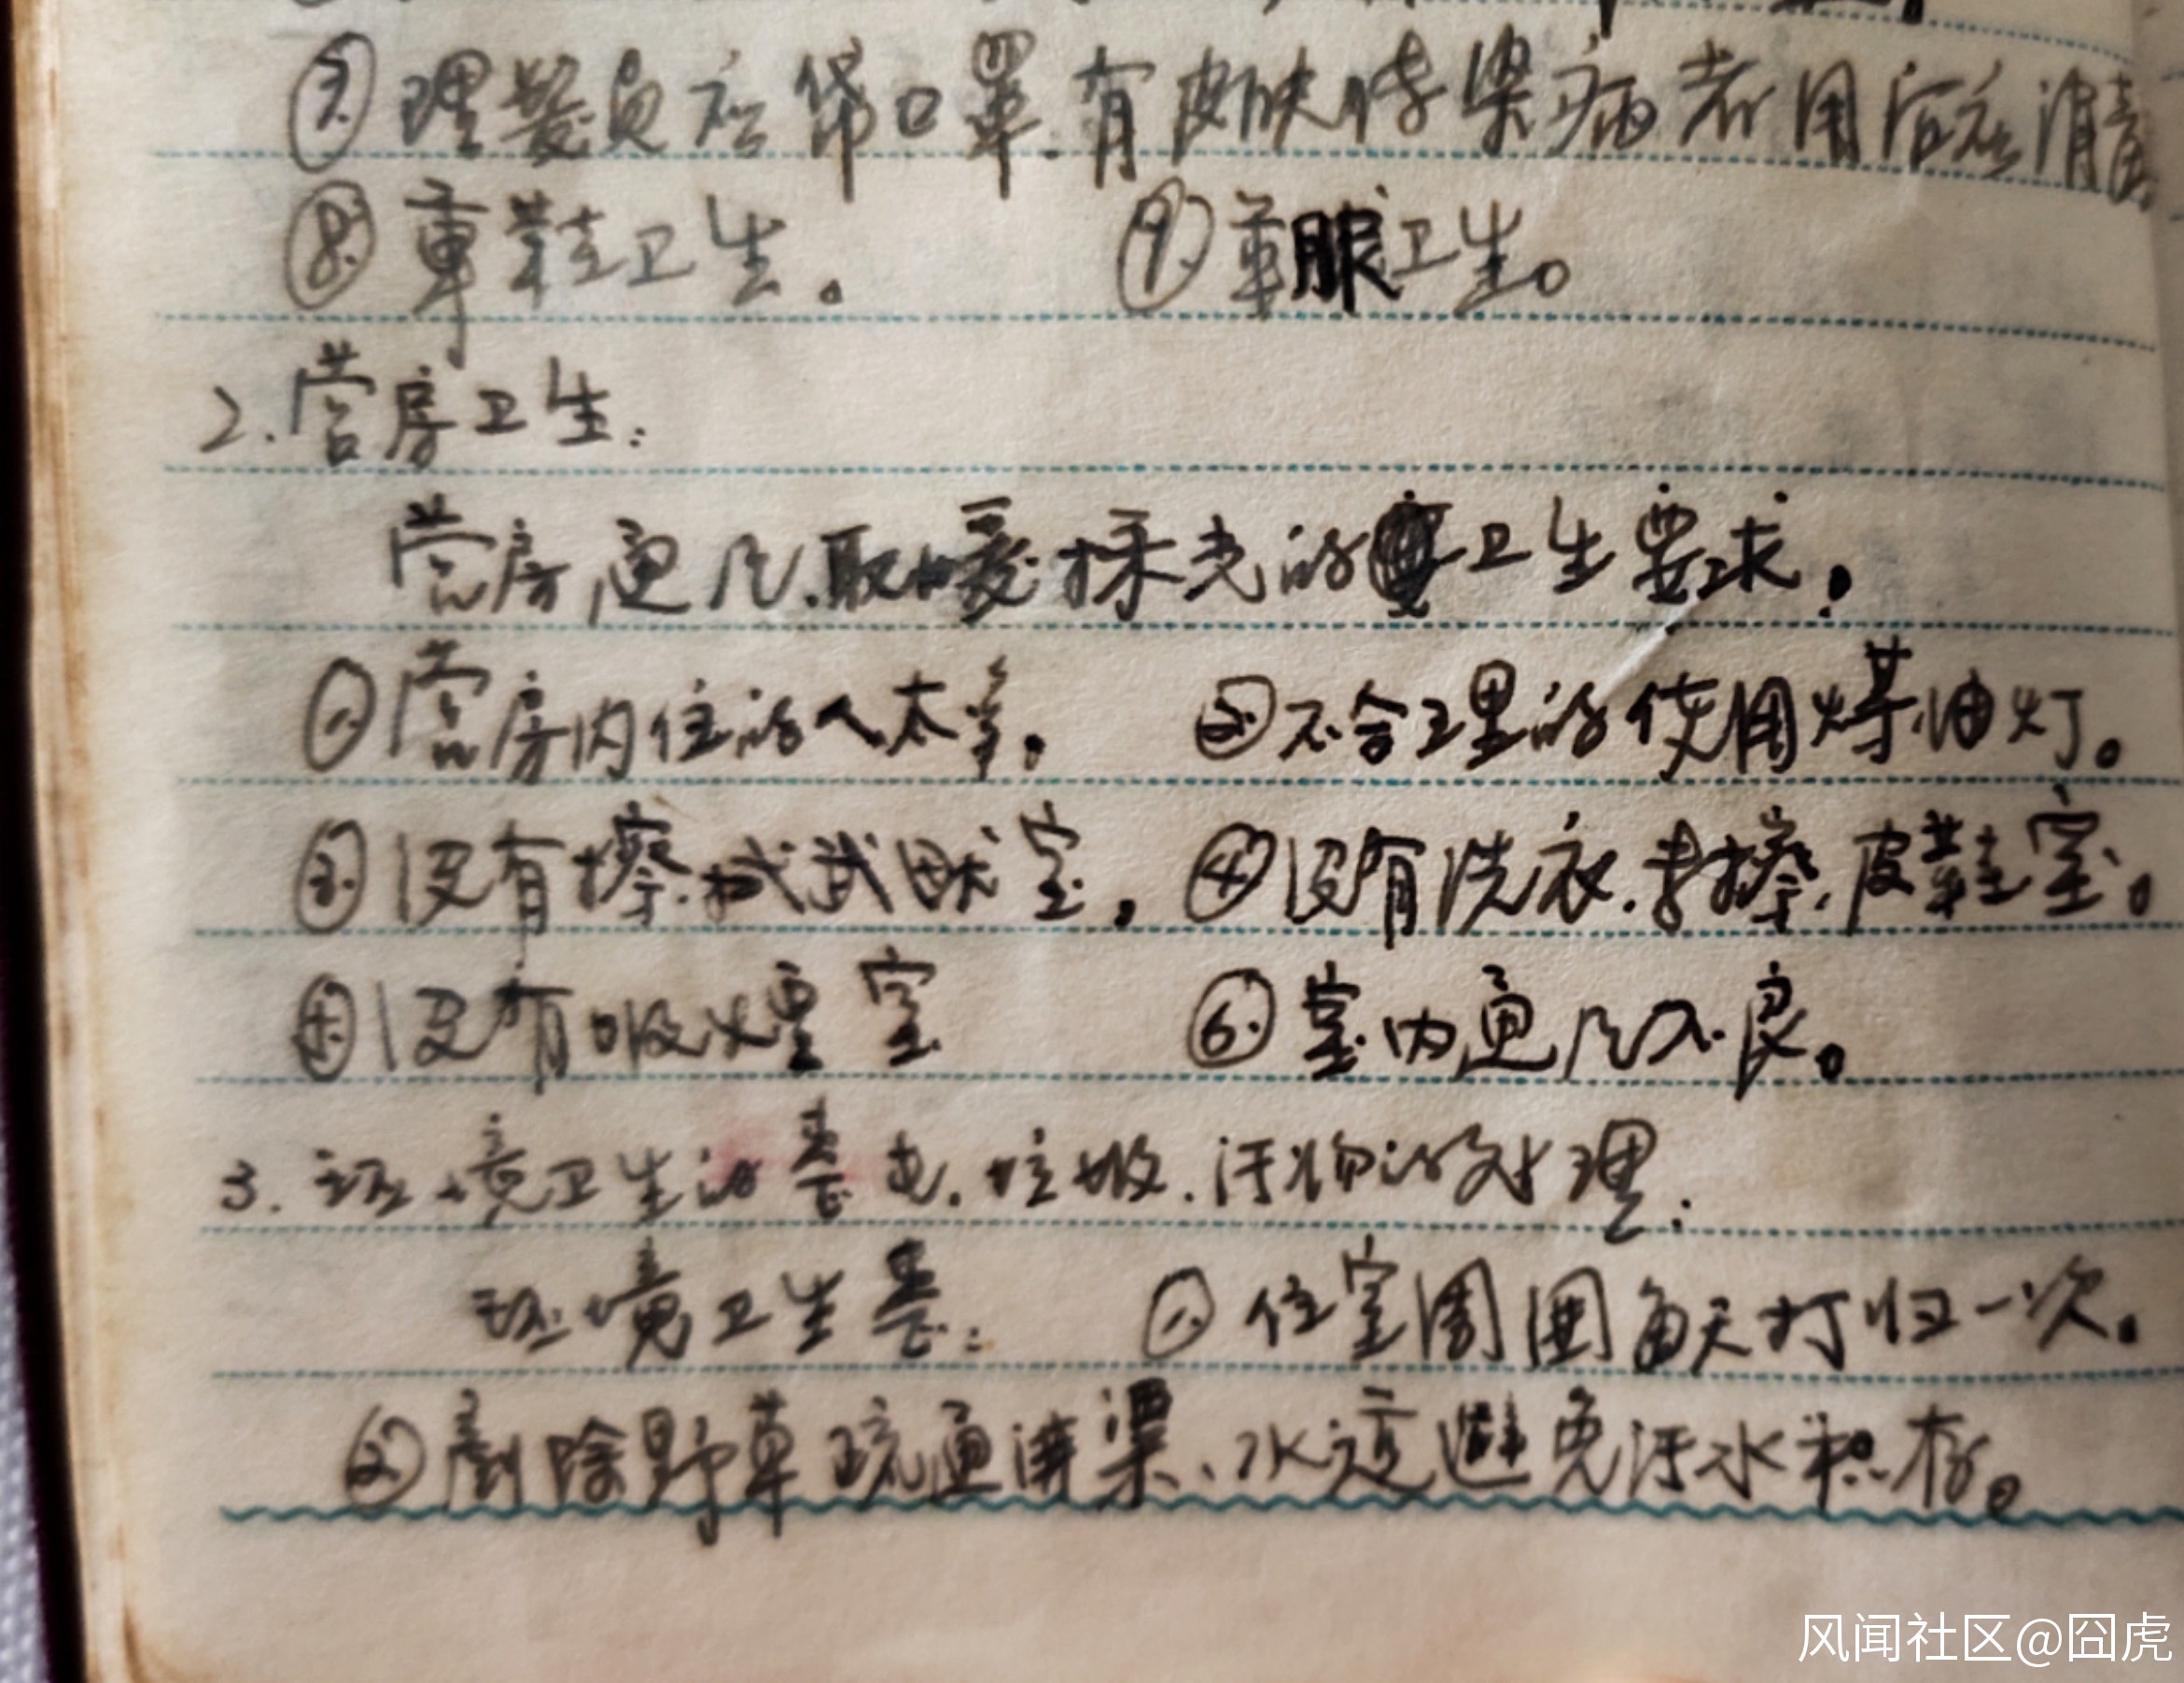 ⑦理发员应带口罩.有皮肤传染病者用后应消毒。
⑧军鞋卫生。 ⑨军服卫生。
2.营房卫生:
营房通风.取暖採光的卫生要求.
①营房内住的人太多. ②不合理的使用煤油灯。
③没有擦拭武器室. ④没有洗衣.擦皮鞋室。
⑤没有吸烟室 ⑥室内通风不良。
3.环境卫生的 垃圾.汙物的处理:
环境卫生: ①住室周围每天打扫一次.
②剷除野草疏通溝渠、水道避免汙水积存。
风闻社区@囧虎